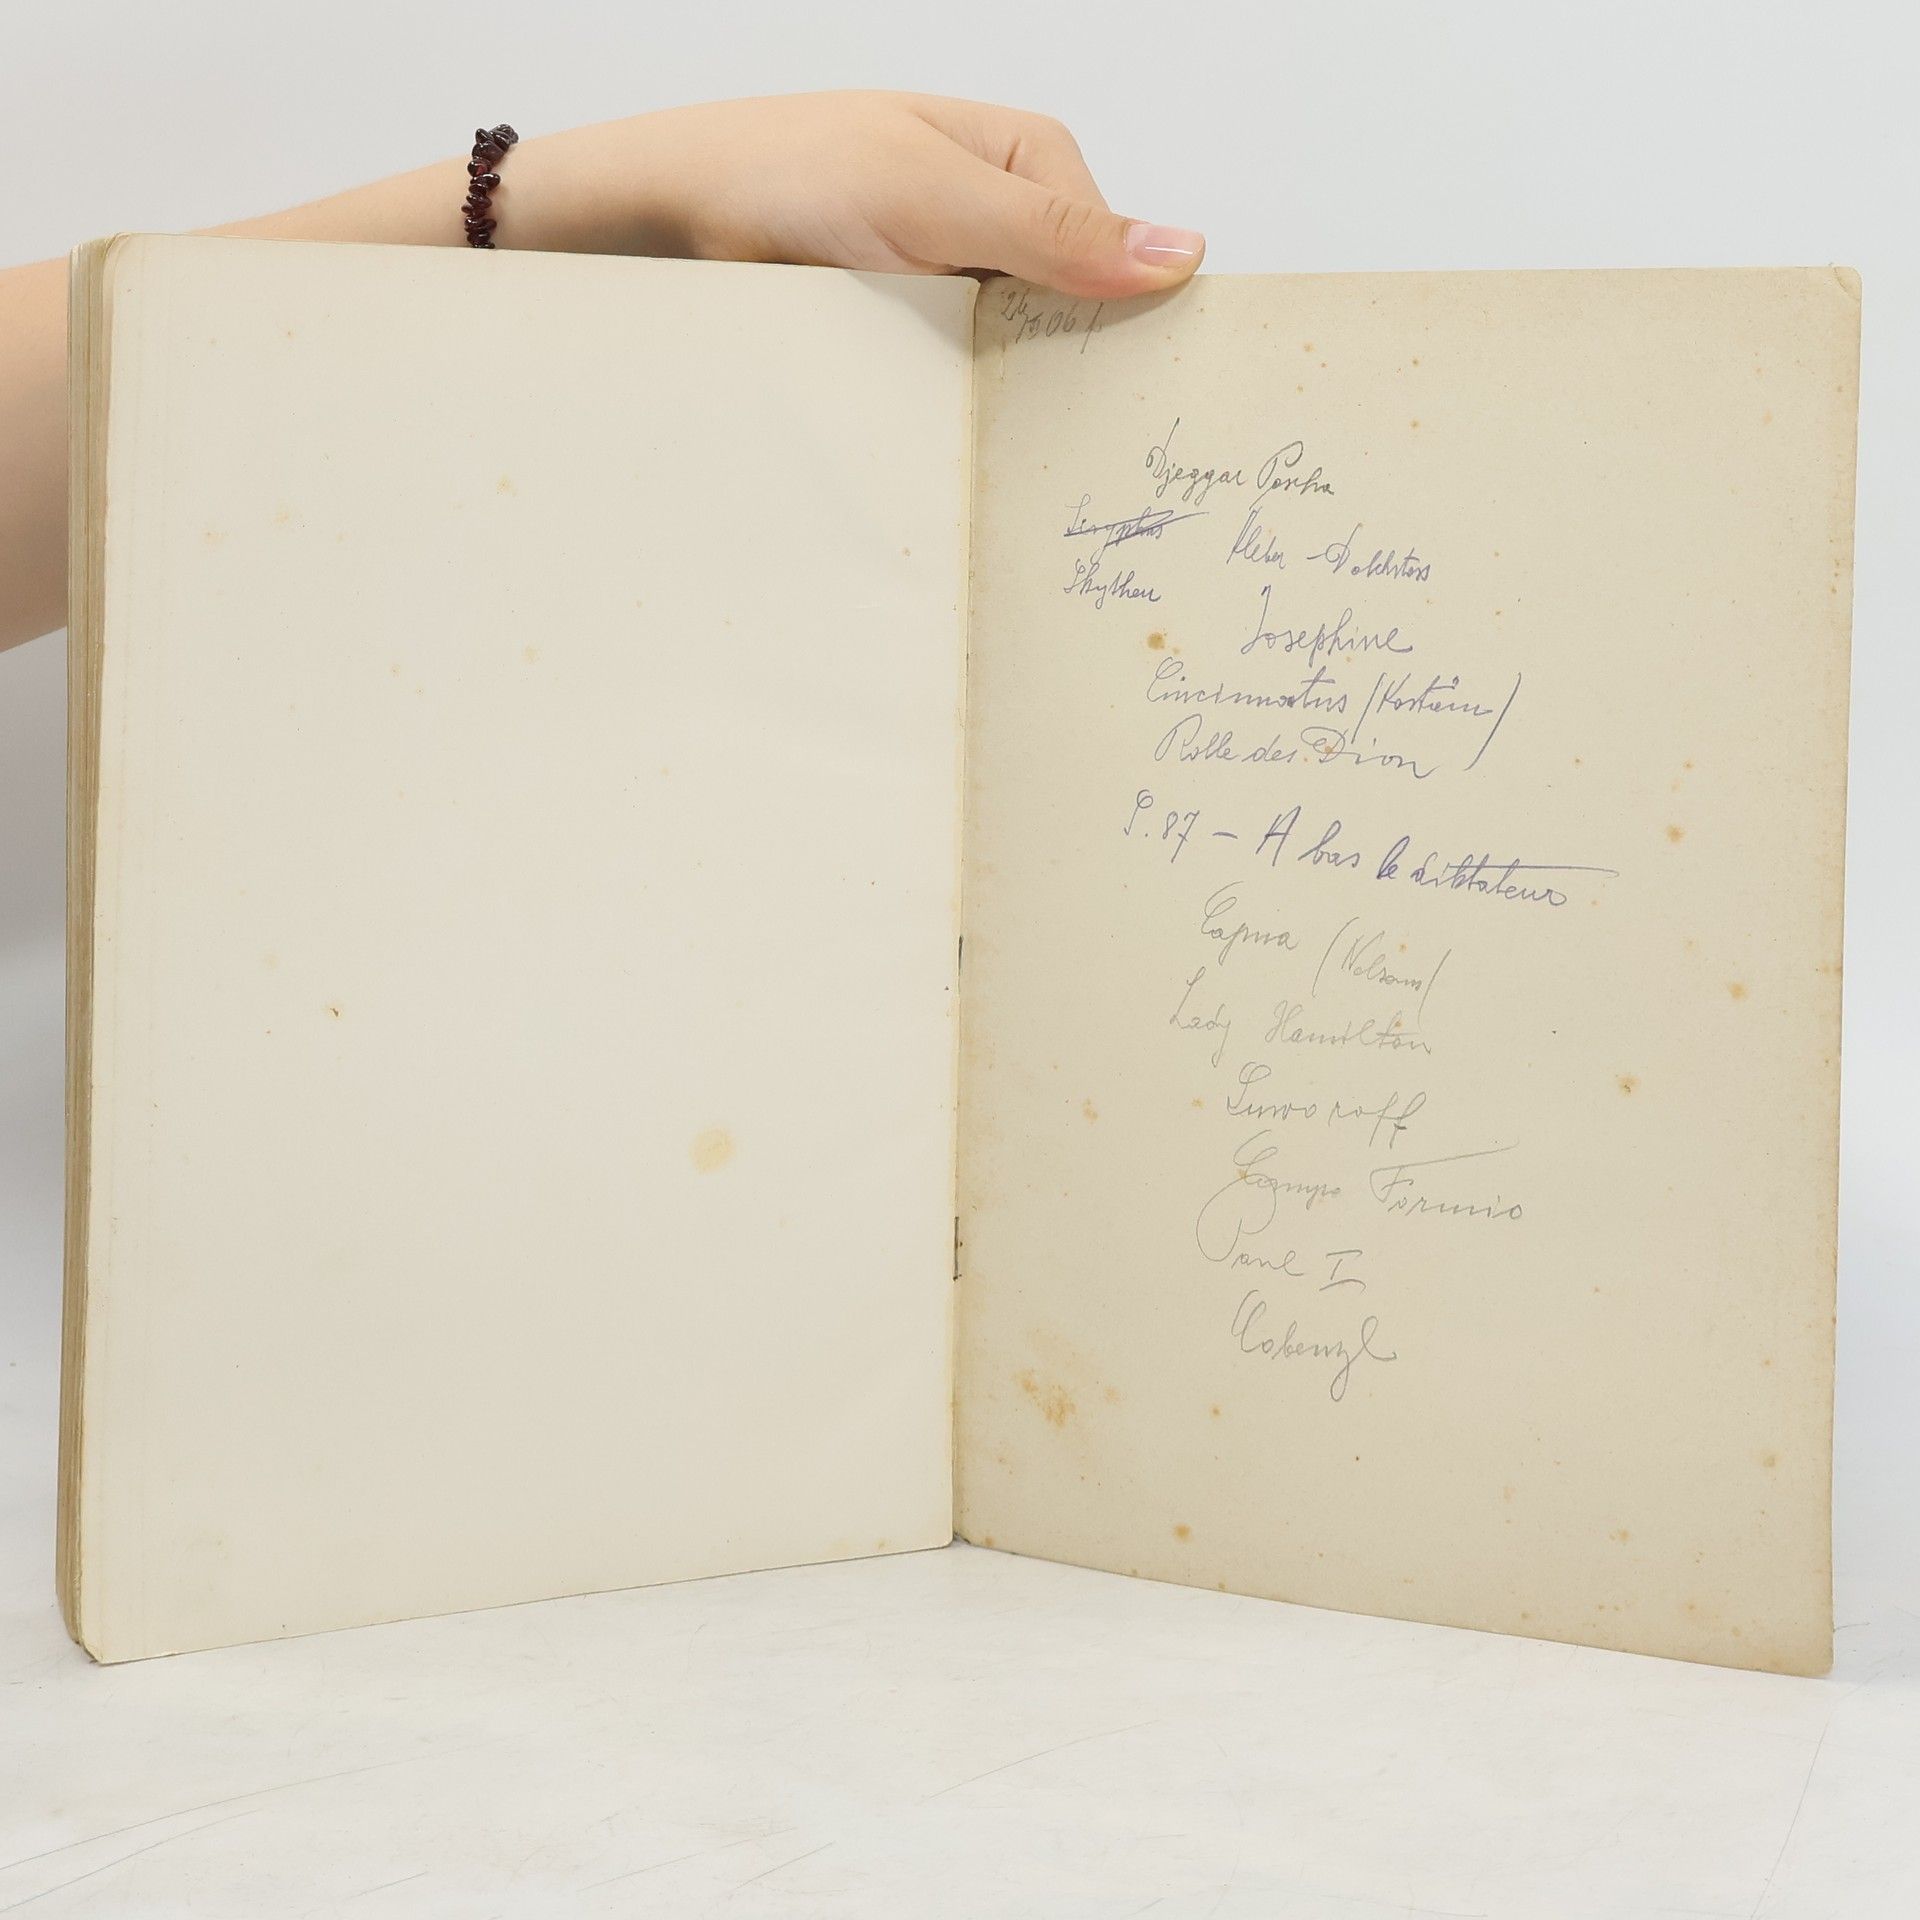 Djeggar Pascha
Kleber - Dolchstoss
Skythen
Josephine
Cincinnatus (Kostüm)
Rolle des Dion
S. 87 - A bas le diktateur
(Nelson)
Lady Hamilton
Suworoff
Campo Formio
Paul I
Cobenzl